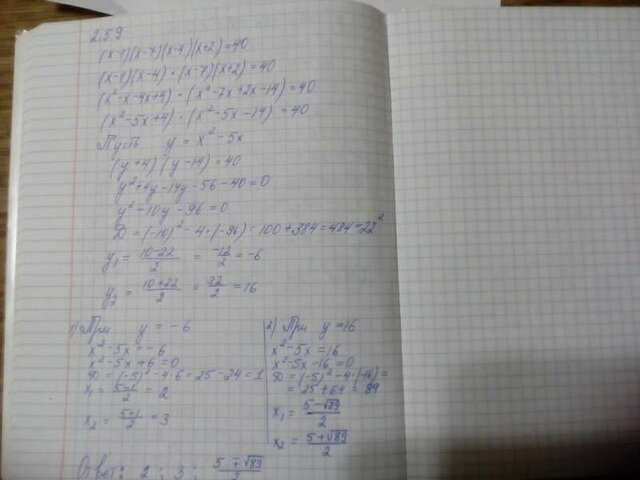 259
(x-1)(x-7)(x-4)(x+2)=40
(x-1)(x-4)·(x-7)(x+2)=40
(x²-x-4x+4)·(x²-7x+2x-14)=40
(x²-5x+4)·(x²-5x-14)=40
Пусть y = x²-5x
(y+4)(y-14)=40
y²+4y-14y-56-40=0
y²-10y-96=0
D=(-10)²-4·(-96)=100+384=484=22²
y₁ = (10-22)/2 = -12/2 = -6
y₂ = (10+22)/2 = 32/2 = 16
1) При y = -6
x²-5x=-6
x²-5x+6=0
D=(-5)²-4·6=25-24=1
x₁ = (5-1)/2 = 2
x₂ = (5+1)/2 = 3
2) При y=16
x²-5x=16
x²-5x-16=0
D=(-5)²-4·(-16)=
=25+64=89
x₁ = (5-√89)/2
x₂ = (5+√89)/2
Ответ: 2; 3; (5∓√89)/2